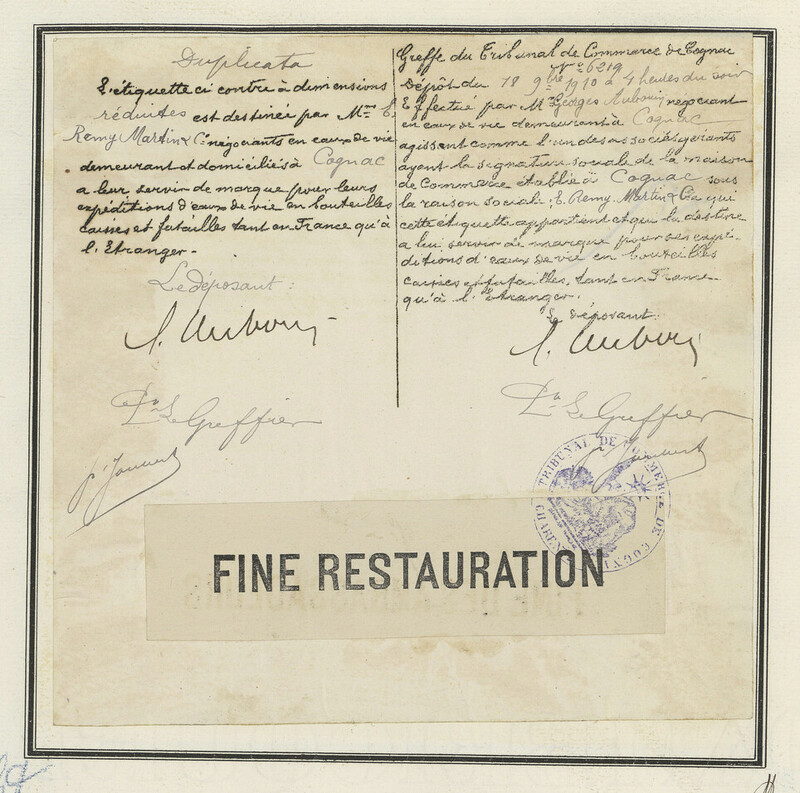 Duplicata
L'étiquette ci contre à dimensions
réduites est destinée par Mm. E.
Remy Martin & Cie négociants en eaux de vie
demeurant et domiciliés à Cognac
a leur servir de marque pour leurs
expéditions d'eaux de vie en bouteilles
caisses et futailles tant en France qu'à
l'Etranger.
Le déposant:
Pr Le Greffier
Greffe du Tribunal de Commerce de Cognac
No 6219
Dépôt du 18 9bre 1910 à 4 heures du soir
Effectué par Mr Georges Auboin négociant
en eaux de vie demeurant à Cognac
agissant comme l'un des associés gérants
ayant la signature sociale de la maison
de Commerce établie à Cognac sous
la raison sociale E. Remy Martin & Cie qui
cette étiquette appartient et qui la destine
a lui servir de marque pour ses expé-
ditions d'eaux de vie en bouteilles
caisses et futailles, tant en France
qu'à l'Etranger.
Le déposant:
Pr Le Greffier
TRIBUNAL DE COMMERCE DE COGNAC
FINE RESTAURATION